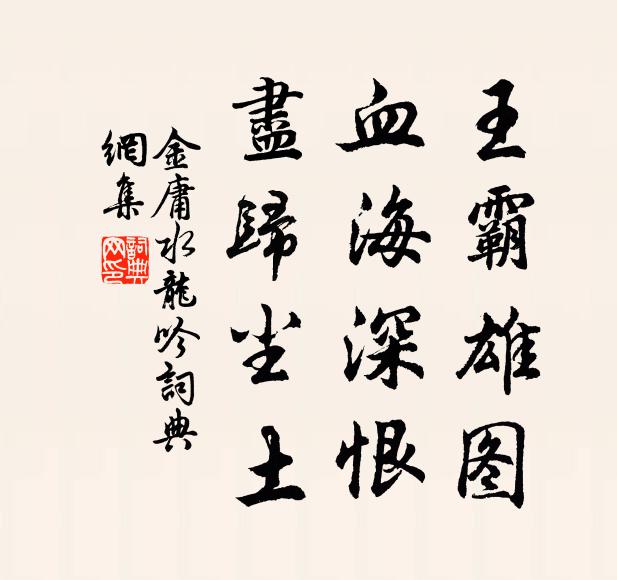 王霸雄图
血海深恨
盡歸尘土
金庸水龍吟詞典
網集
詞典
网印